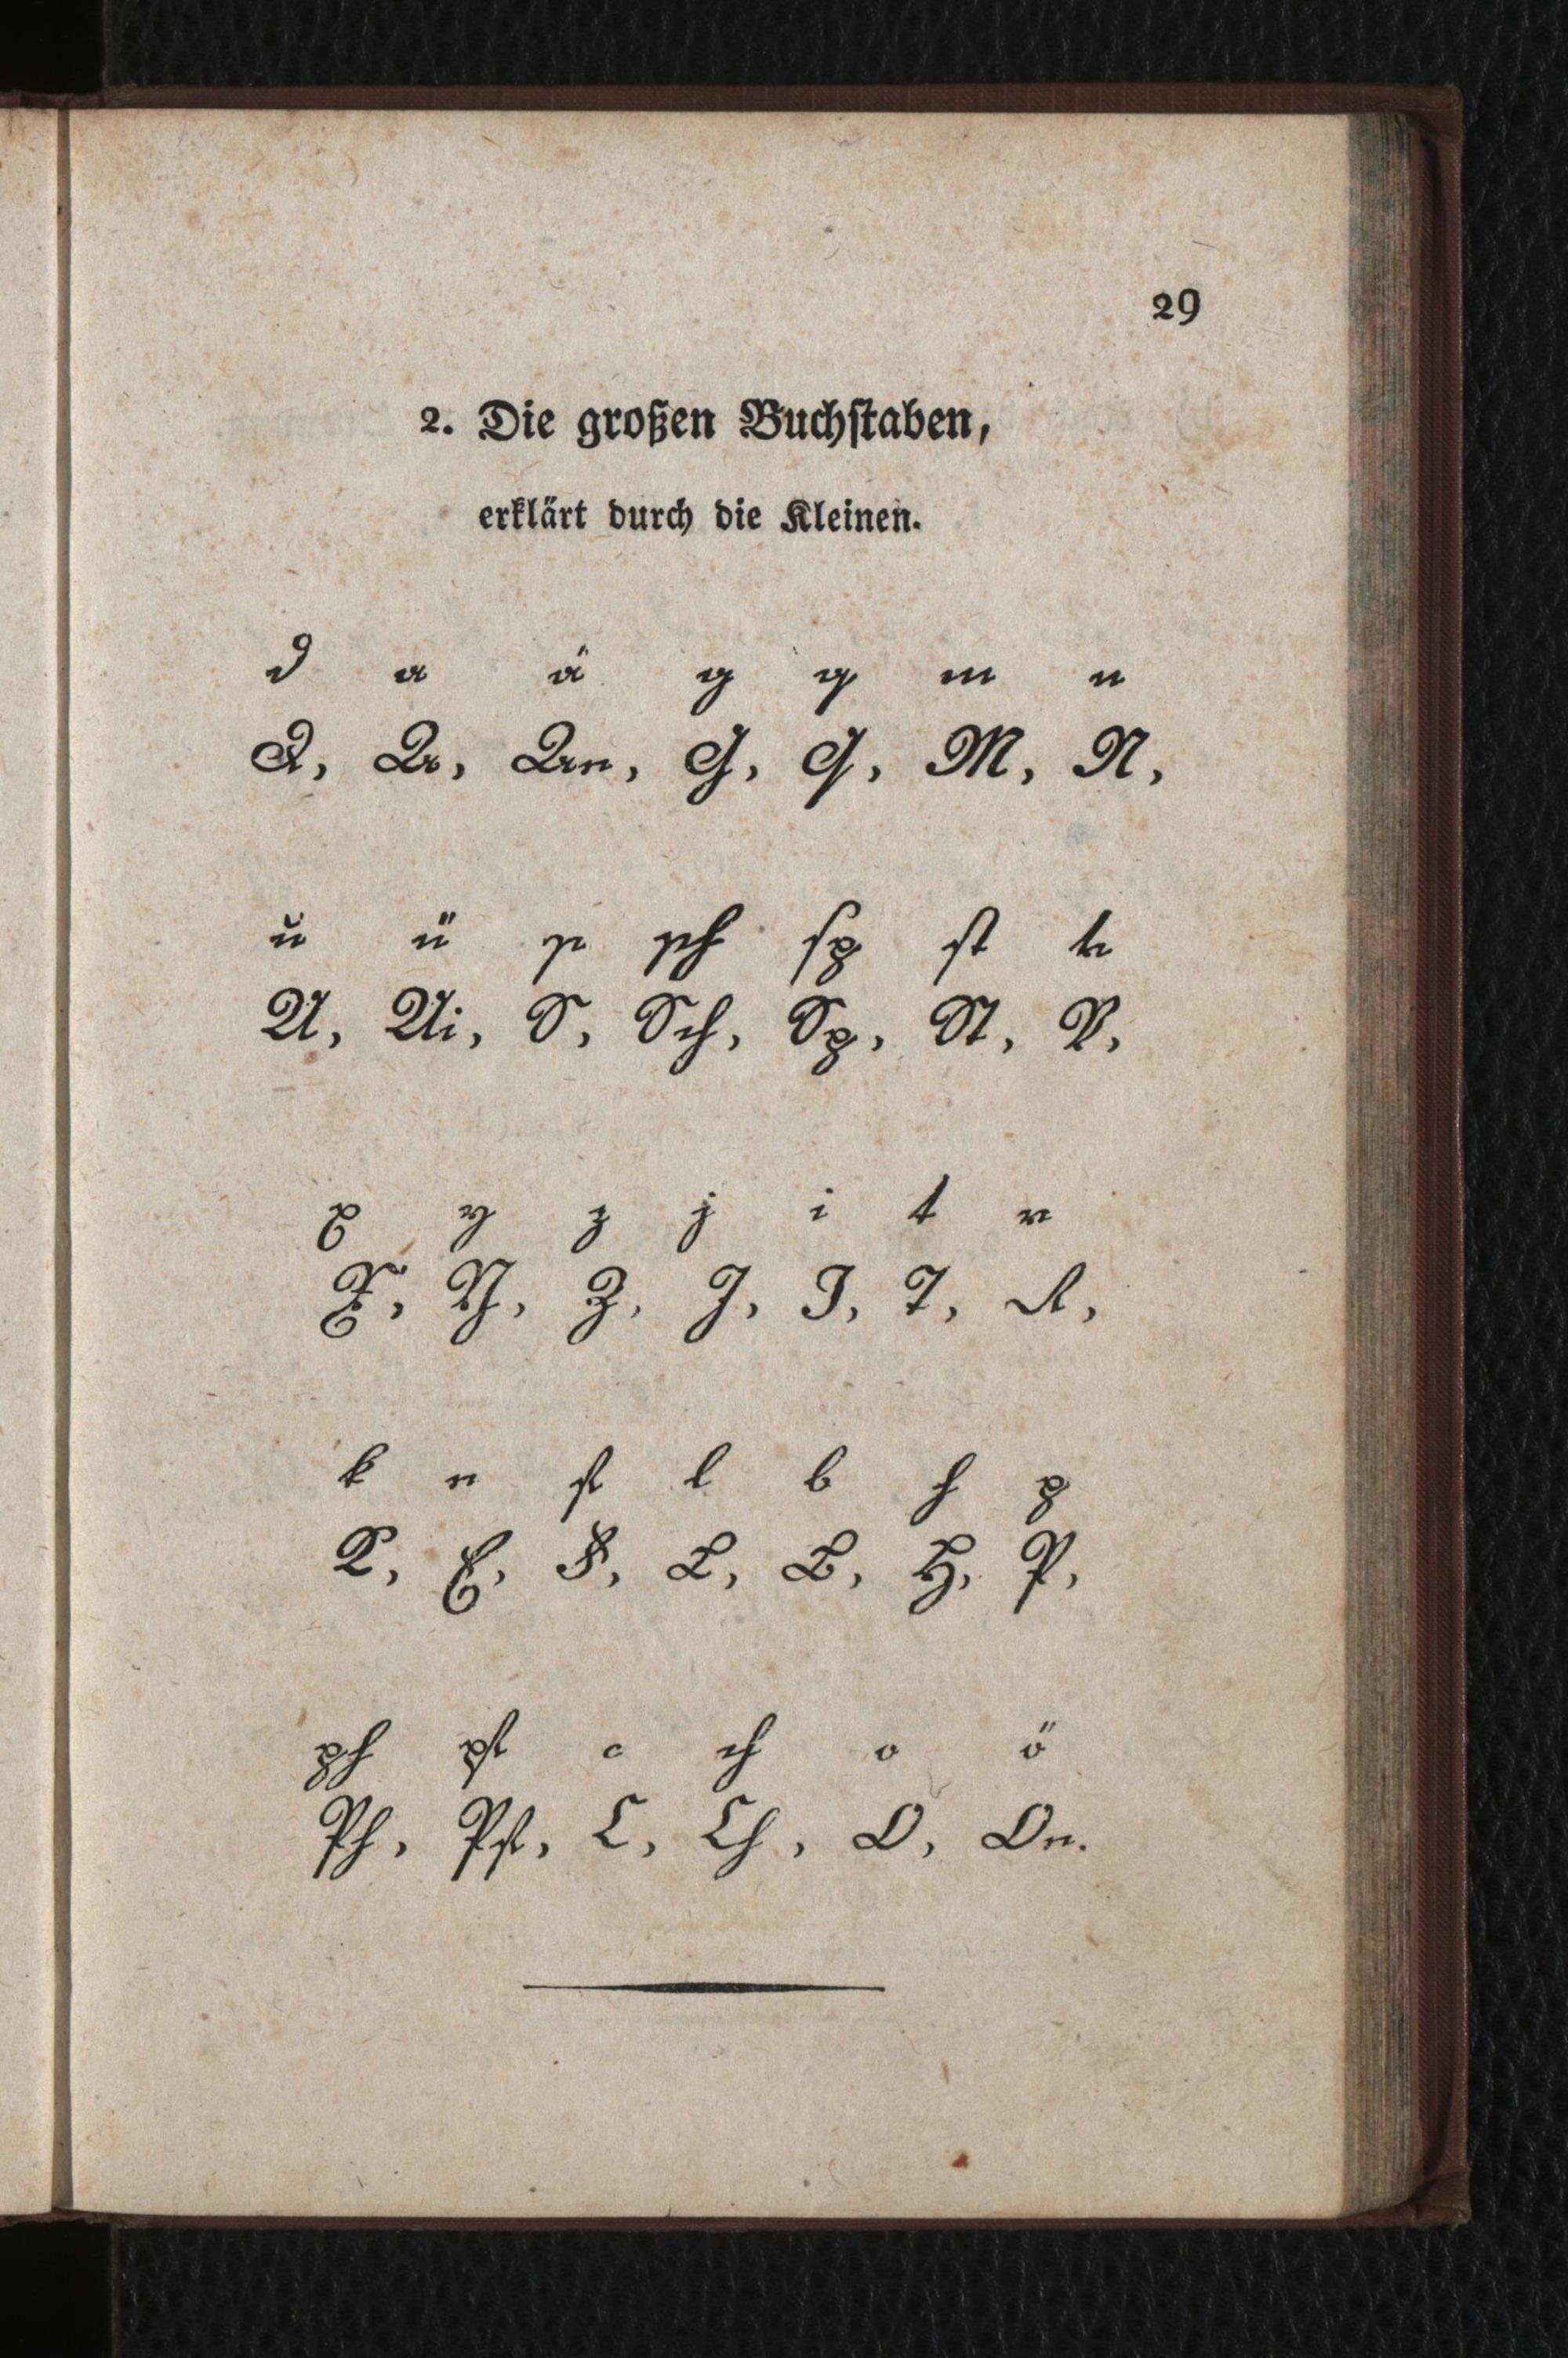 29
2. Die großen Buchstaben,
erklärt durch die Kleinen.
d a ä g q m n
D, A, Ae, G, Q, M, N,
u ü w sch sp st v
U, Ui, S, Sch, Sp, St, V,
x y z j i t r
X, Y, Z, J, I, T, R,
k e f l b h p
K, E, F, L, B, H, P,
ph pf c ch o ö
Ph, Pf, C, Ch, O, Oe.